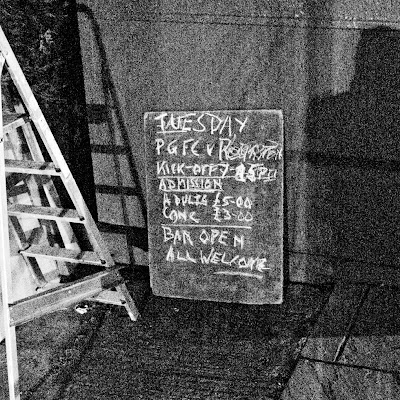 TUESDAY
PGFC V
KICK-OFF 7-45PM
ADMISSION
ADULTS £5-00
CONC £3-00
BAR OPEN
ALL WELCOME